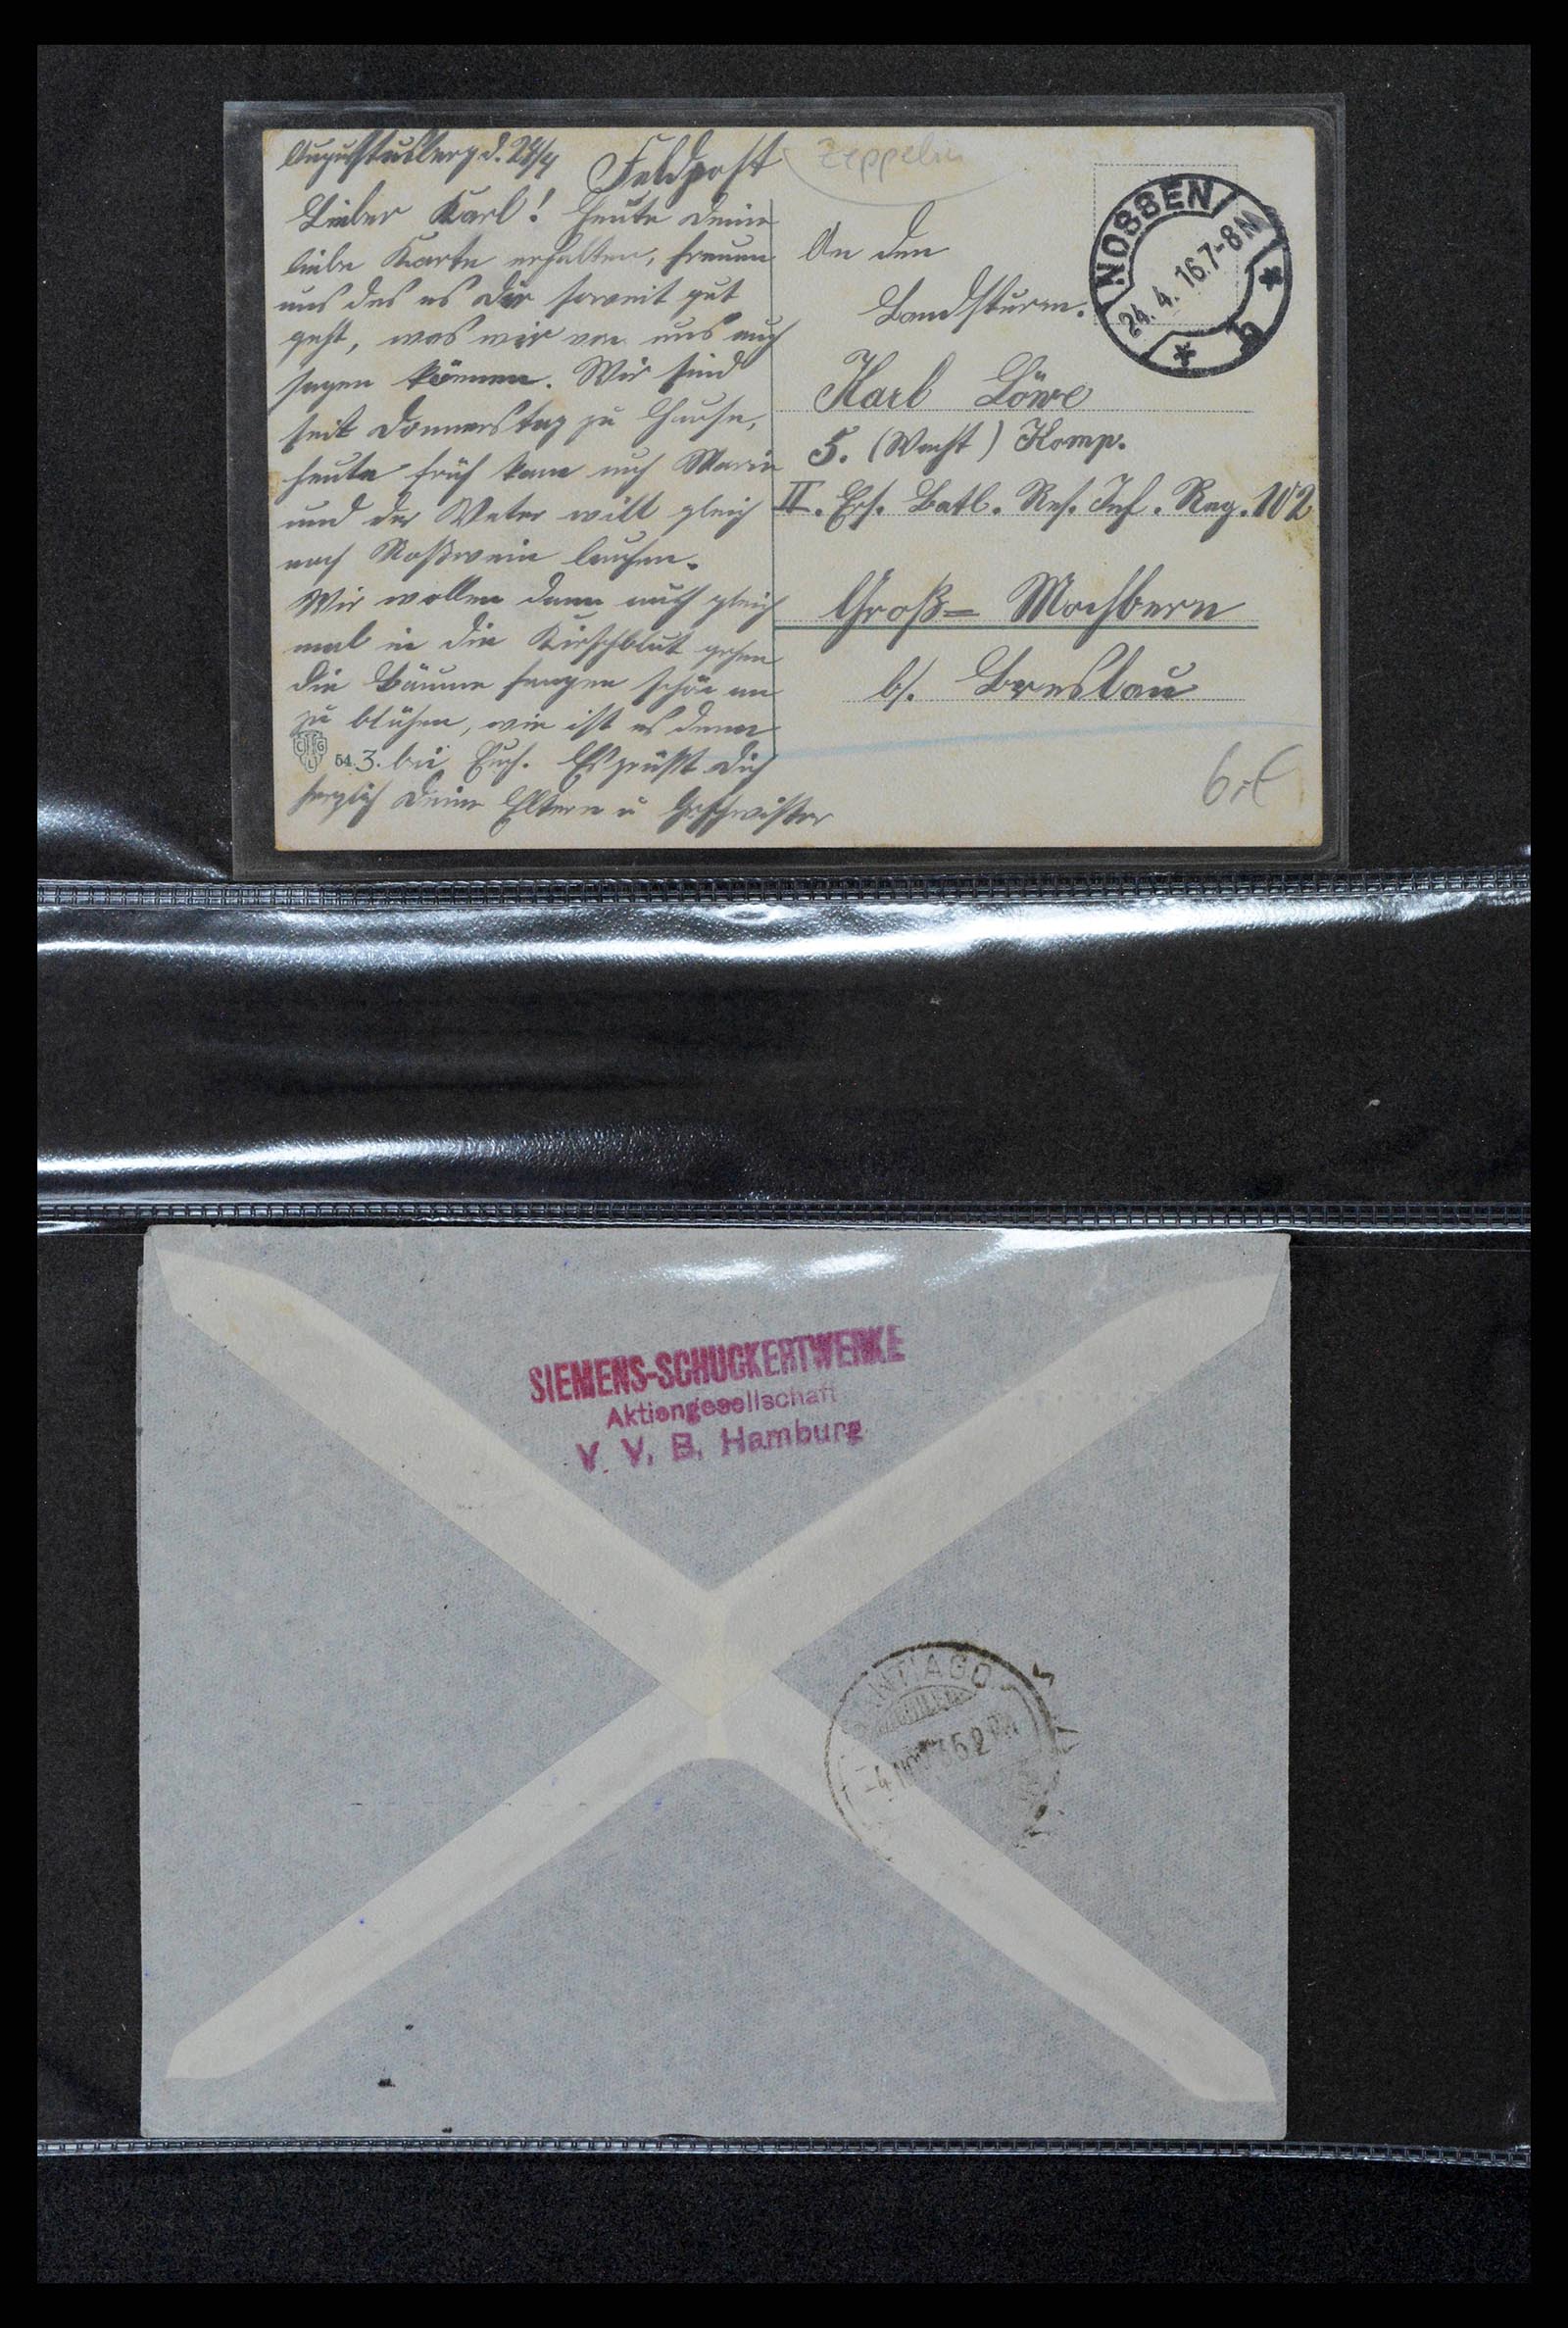 Augustusberg d. 24/4
Feldpost
Zeppelin
Lieber Karl! Heute Deine
liebe Karte erhalten, freuen
uns das es Dir soweit gut
geht, was wir von uns auch
sagen können. Wir sind
seit Donnerstag zu Hause,
heute früh kam auch Marie
und der Vater will gleich
nach Roßwein laufen.
Wir wollen dann auch gleich
mal in die Kirschblut gehen
die Bäume fangen schön an
zu blühen, wie ist es denn
bei Euch. Es grüßt Dich
herzlich Deine Eltern u Geschwister
C G
54.3.
NOSSEN
24.4.16.7-8N
* b *
An den
Landsturm.
Karl Löwe
5. (Wacht) Komp.
II. Ers. Batl. Res. Inf. Reg. 102
Groß= Mochbern
b/. Breslau
SIEMENS-SCHUCKERTWERKE
Aktiengesellschaft
V. V. B. Hamburg
SANTIAGO
CHILE
-4 NOV 35 2 PM